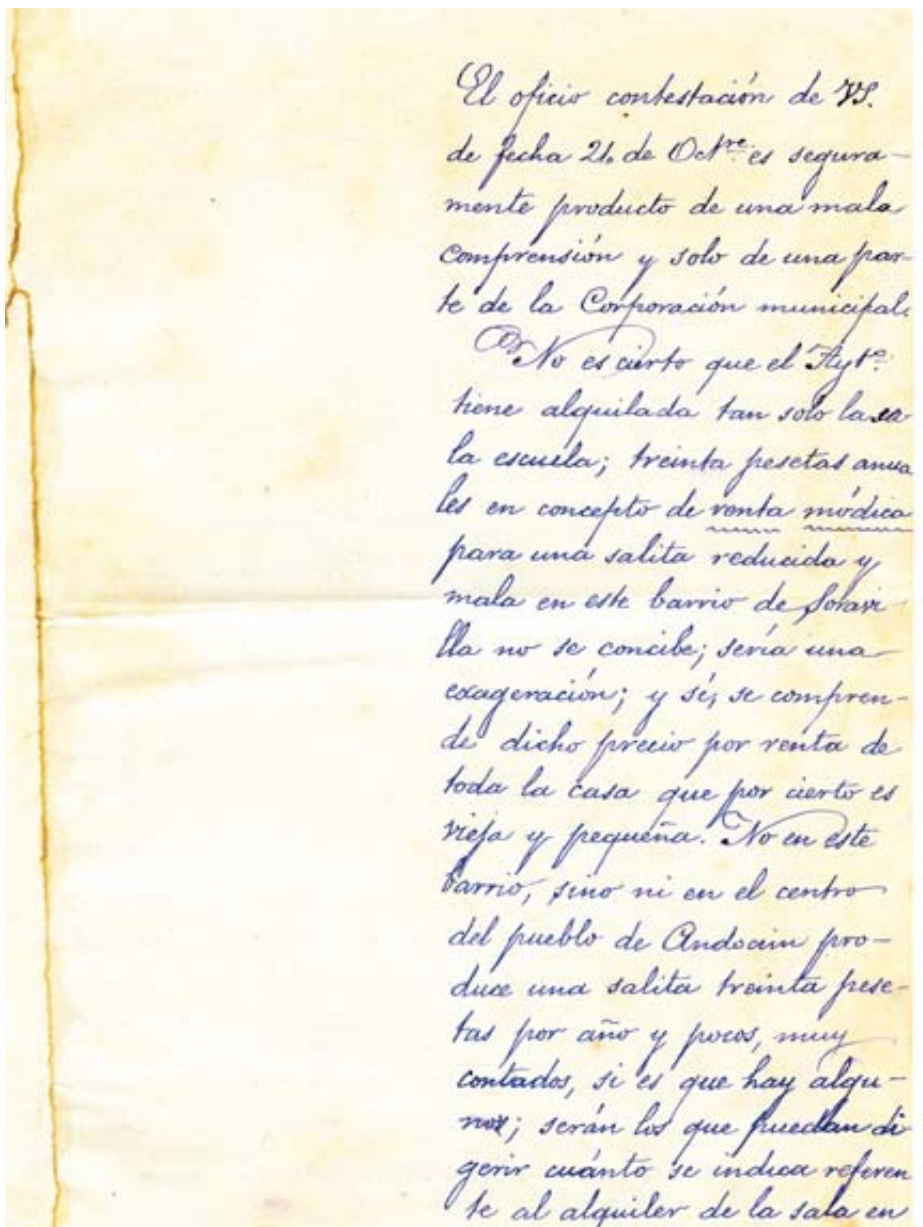 El oficio contestación de VS.
de fecha 21 de Octre es segura-
mente producto de una mala
comprensión y solo de una par-
te de la Corporación municipal.
No es cierto que el Aytº
tiene alquilada tan solo la
la escuela; treinta pesetas anua
les en concepto de renta módica
para una salita reducida y
mala en este barrio de Soravi
lla no se concibe; sería una
exageración; y sí, se compren-
de dicho precio por renta de
toda la casa que por cierto es
vieja y pequeña. No en este
barrio, sino ni en el centro
del pueblo de Andoain pro-
duce una salita treinta pese-
tas por año y pocos, muy
contados, si es que hay algu-
nos; serán los que puedan di
gerir cuánto se indica referen
te al alquiler de la sala en